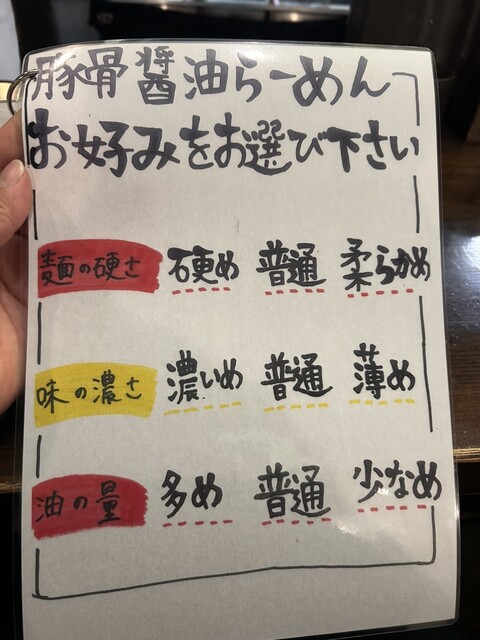 豚骨醤油らーめん
お好みをお選び下さい
麺の硬さ 硬め 普通 柔らかめ
味の濃さ 濃いめ 普通 薄め
油の量 多め 普通 少なめ